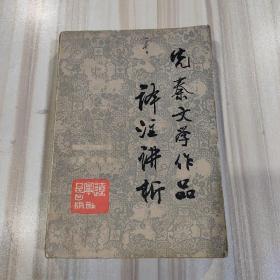 先秦文学作品
译注讲析